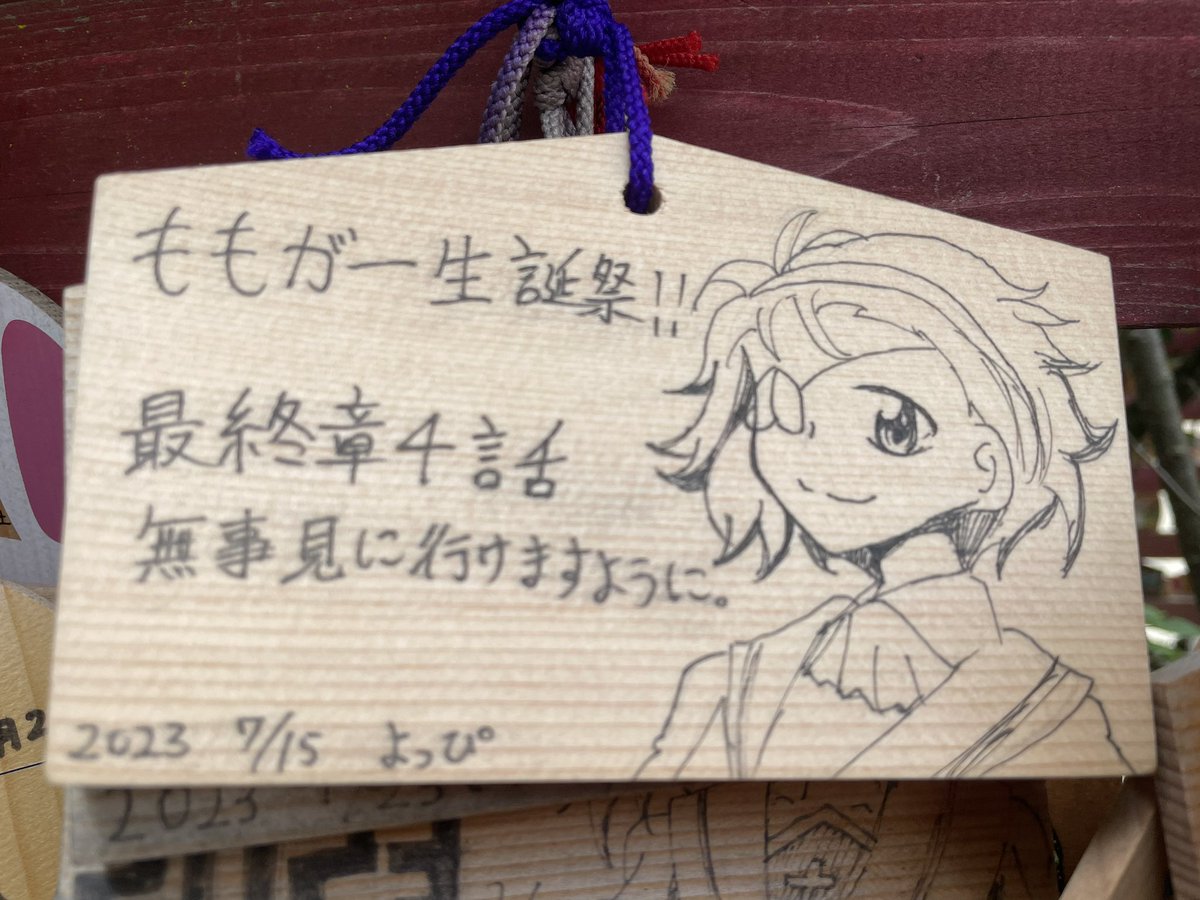 ももがー生誕祭!!
最終章4話
無事見に行けますように。
2023 7/15 よっぴ
月2
2023